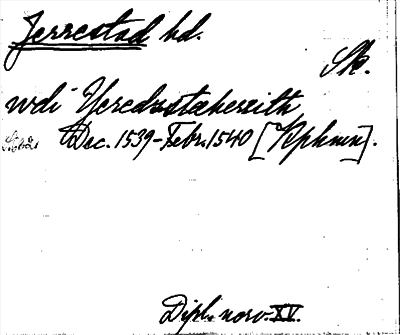 Jerrestad hd.
Sk.
wdi Yeredxstahereith
Dec. 1539-Febr. 1540 [Kphmn].
Dipl. norv. XV.